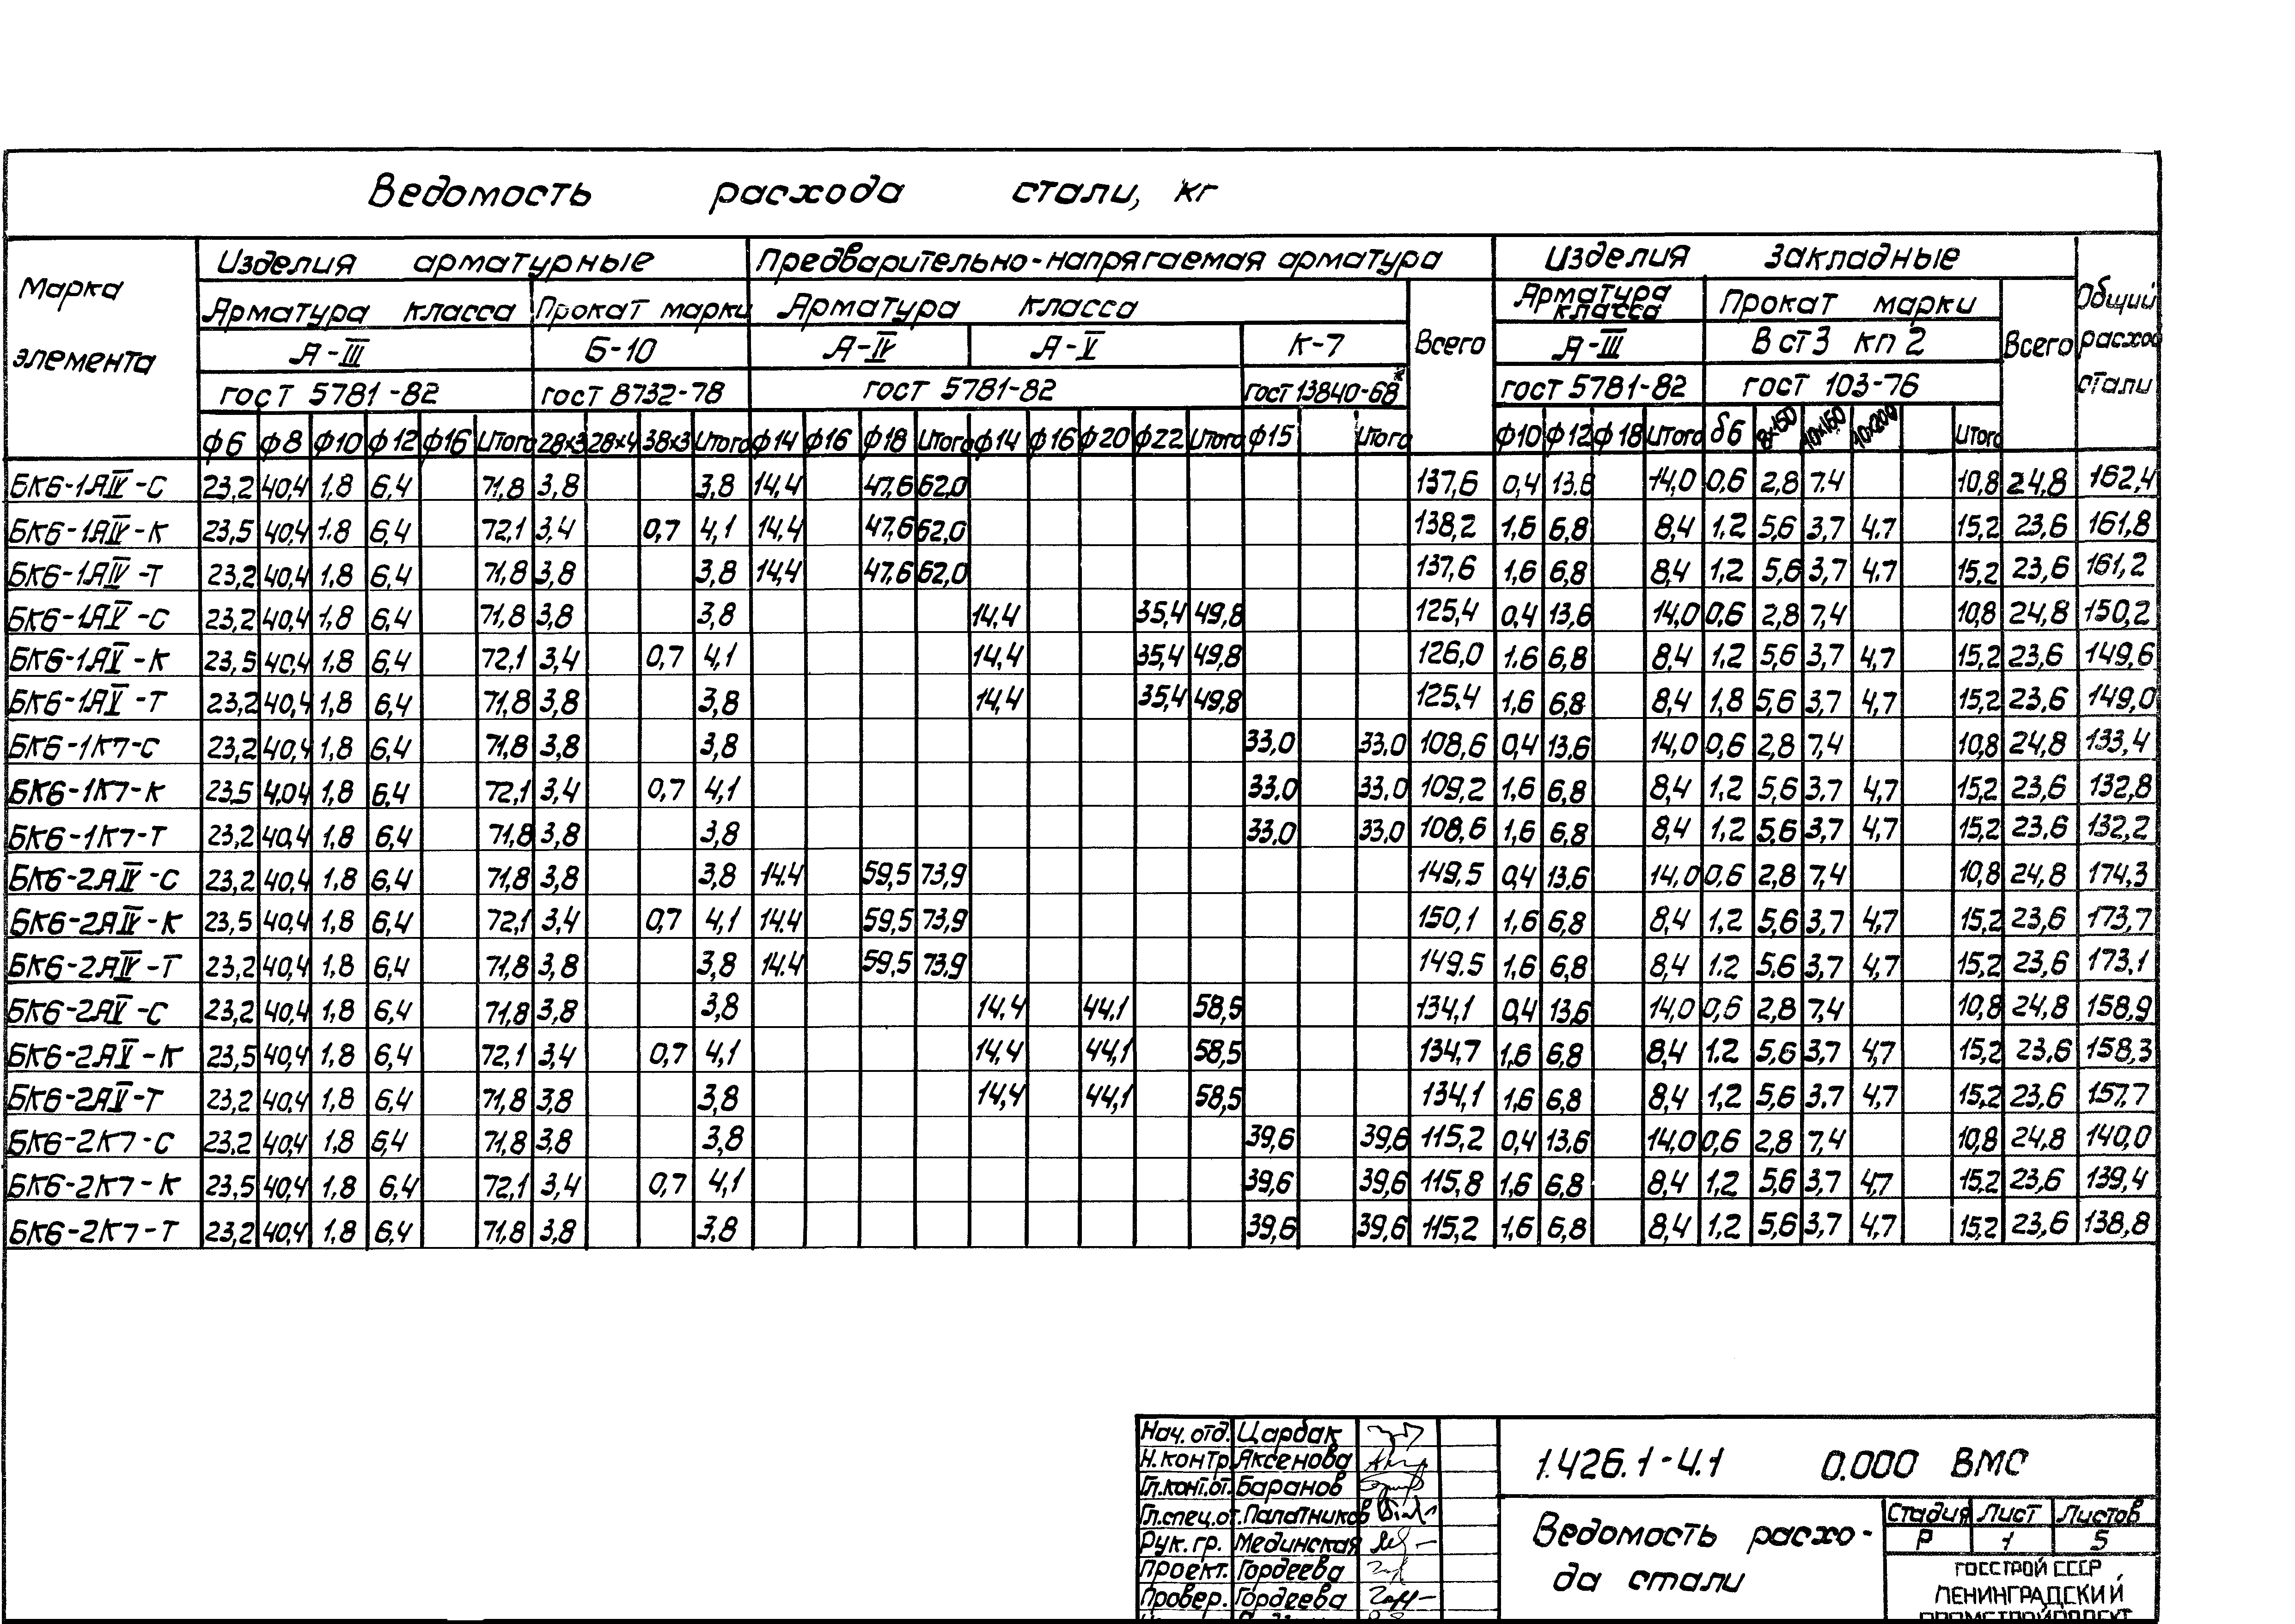 Ведомость расхода стали, кг
Марка элемента
Изделия арматурные
Предварительно-напрягаемая арматура
Изделия закладные
Общий расход стали
Арматура класса
Прокат марки
Арматура класса
Всего
Арматура класса
Прокат марки
Всего
А-III
Б-10
А-IV
А-V
К-7
А-III
В ст3 кп 2
гост 5781-82
гост 8732-78
гост 5781-82
гост 13840-68*
гост 5781-82
гост 103-76
ф6 ф8 ф10 ф12 ф16 Итого 28×3 28×4 38×3 Итого ф14 ф16 ф18 Итого ф14 ф16 ф20 ф22 Итого ф15 Итого ф10 ф12 ф18 Итого δ6 8×150 10×150 10×200 Итого
БК6-1АIV-С 23,2 40,4 1,8 6,4 71,8 3,8 3,8 14,4 47,6 62,0 137,6 0,4 13,6 14,0 0,6 2,8 7,4 10,8 24,8 162,4
БК6-1АIV-К 23,5 40,4 1.8 6,4 72,1 3,4 0,7 4,1 14,4 47,6 62,0 138,2 1,6 6,8 8,4 1,2 5,6 3,7 4,7 15,2 23,6 161,8
БК6-1АIV-Т 23,2 40,4 1,8 6,4 71,8 3,8 3,8 14,4 47,6 62,0 137,6 1,6 6,8 8,4 1,2 5,6 3,7 4,7 15,2 23,6 161,2
БК6-1АV-С 23,2 40,4 1,8 6,4 71,8 3,8 3,8 14,4 35,4 49,8 125,4 0,4 13,6 14,0 0,6 2,8 7,4 10,8 24,8 150,2
БК6-1АV-К 23,5 40,4 1,8 6,4 72,1 3,4 0,7 4,1 14,4 35,4 49,8 126,0 1,6 6,8 8,4 1,2 5,6 3,7 4,7 15,2 23,6 149,6
БК6-1АV-Т 23,2 40,4 1,8 6,4 71,8 3,8 3,8 14,4 35,4 49,8 125,4 1,6 6,8 8,4 1,8 5,6 3,7 4,7 15,2 23,6 149,0
БК6-1К7-С 23,2 40,4 1,8 6,4 71,8 3,8 3,8 33,0 33,0 108,6 0,4 13,6 14,0 0,6 2,8 7,4 10,8 24,8 133,4
БК6-1К7-К 23,5 4,04 1,8 6,4 72,1 3,4 0,7 4,1 33,0 33,0 109,2 1,6 6,8 8,4 1,2 5,6 3,7 4,7 15,2 23,6 132,8
БК6-1К7-Т 23,2 40,4 1,8 6,4 71,8 3,8 3,8 33,0 33,0 108,6 1,6 6,8 8,4 1,2 5,6 3,7 4,7 15,2 23,6 132,2
БК6-2АIV-С 23,2 40,4 1,8 6,4 71,8 3,8 3,8 14.4 59,5 73,9 149,5 0,4 13,6 14,0 0,6 2,8 7,4 10,8 24,8 174,3
БК6-2АIV-К 23,5 40,4 1,8 6,4 72,1 3,4 0,7 4,1 14.4 59,5 73,9 150,1 1,6 6,8 8,4 1,2 5,6 3,7 4,7 15,2 23,6 173,7
БК6-2АIV-Т 23,2 40,4 1,8 6,4 71,8 3,8 3,8 14.4 59,5 73,9 149,5 1,6 6,8 8,4 1.2 5,6 3,7 4,7 15,2 23,6 173,1
БК6-2АV-С 23,2 40,4 1,8 6,4 71,8 3,8 3,8 14,4 44,1 58,5 134,1 0,4 13,6 14,0 0,6 2,8 7,4 10,8 24,8 158,9
БК6-2АV-К 23,5 40,4 1,8 6,4 72,1 3,4 0,7 4,1 14,4 44,1 58,5 134,7 1,6 6,8 8,4 1.2 5,6 3,7 4,7 15,2 23.6 158,3
БК6-2АV-Т 23,2 40,4 1,8 6,4 71,8 3,8 3,8 14,4 44,1 58,5 134,1 1,6 6,8 8,4 1,2 5,6 3,7 4,7 15,2 23,6 157,7
БК6-2К7-С 23,2 40,4 1,8 6,4 71,8 3,8 3,8 39,6 39,6 115,2 0,4 13,6 14,0 0,6 2,8 7,4 10,8 24,8 140,0
БК6-2К7-К 23,5 40,4 1,8 6,4 72,1 3,4 0,7 4,1 39,6 39,6 115,8 1,6 6,8 8,4 1,2 5,6 3,7 4,7 15,2 23,6 139,4
БК6-2К7-Т 23,2 40,4 1,8 6,4 71,8 3,8 3,8 39,6 39,6 115,2 1,6 6,8 8,4 1,2 5,6 3,7 4,7 15,2 23,6 138,8
Нач. отд. Царбак
Н. контр. Аксенова
Гл.конт.от. Баранов
Гл.спец.от. Палатников
Рук. гр. Мединская
Проект. Гордеева
Провер. Гордеева
1.426.1-4.1 0.000 ВМС
Ведомость расхо-
да стали
Стадия Лист Листов
Р 1 5
ГОССТРОЙ СССР
ЛЕНИНГРАДСКИЙ